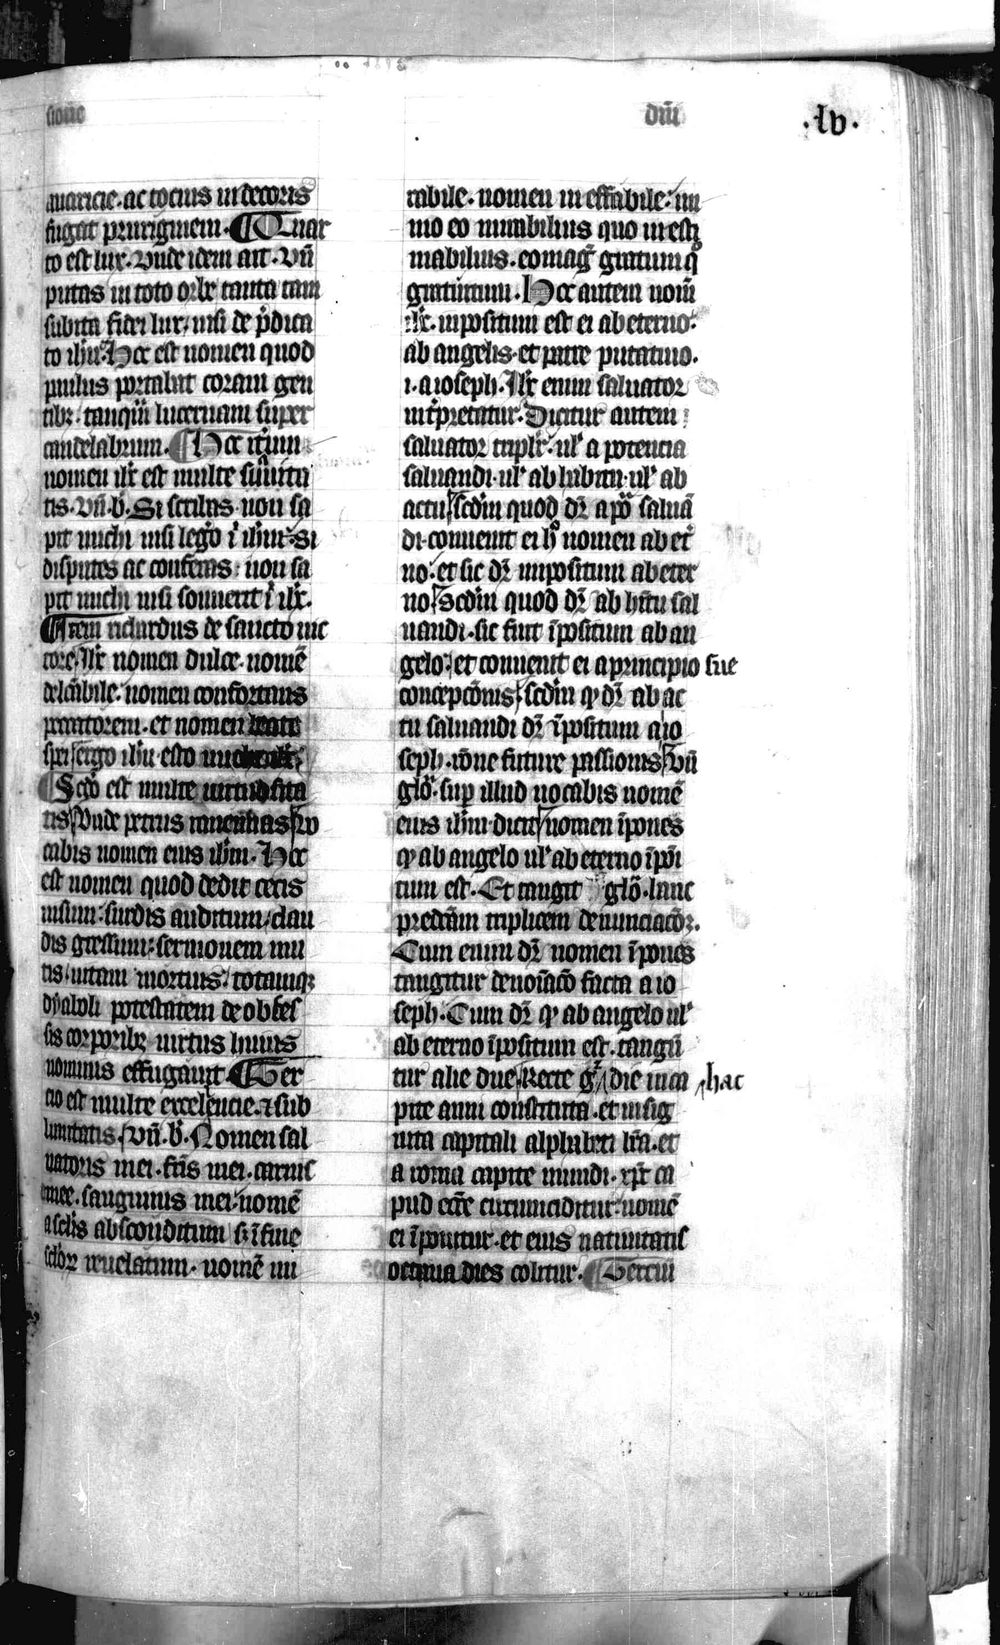 sione
dñi
.lv.
auaricie. ac tocius indecoris
fugat pruriginem. ¶ Quar
to est lux. Vnde idem ait. Vñ
putas in toto orbe tanta tam
subita fidei lux. nisi de p̄dica
to ih̄u. Hec est nomen quod
paulus portabat coram gen
tibȝ. tanquā lucernam super
candelabrum. ¶ Hec itẽum
nomen ih̄c est multe suauita
tis. Vñ. b̾. Si scribas non sa
pit michi nisi lego ī ih̄m. Si
disputes ac conferas. non sa
pit michi nisi sonuerit ī ih̄c.
¶ Item richardus de sancto vic
tore. Ih̄c nomen dulce. nomē
delcābile. nomen confortans
peccatorem. et nomen beate
spei ergo ih̄u esto michi ih̄c
¶ Scd̾o est multe virtuosita
tis Vnde petrus rauennas Vo
cabis nomen eius ih̄m. Hec
est nomen quod dedit cecis
uisum. surdis auditum. clau
dis gressum. sermonem mu
tis. uitam mortuis. totamqȝ
dyaboli potestatem de obses
sis corporibȝ uirtus huius
nominis effugauit. ¶ Ter
cio est multe excelencie. ⁊ sub
limitatis. Vñ. b̾. Nomen sal
uatoris mei. fr̄is mei. carnis
mee. sanguinis mei. nomē
a sclīs absconditum sȝ ī fine
sclōꝝ reuelatum. nomē mi
rabile. nomen ineffabile. im
mo eo mirabilius quo inesti
mabilius. eo mag̾ gratum qͦ
gratuitum. Hec autem nomē
ih̄c. inpositum est ei ab eterno.
ab angelis. et patre putatiuo.
.i. a ioseph. Ih̄c enim saluator
int̾pretatur. Dicitur autem
saluator tripl̄r. ul̾ a potencia
saluandi. ul̾ ab habitu. ul̾ ab
actu scd̄m quod dr̄ a po͞ saluā
di. conuenit ei hͦ nomen ab et̾
no. et sic dr̄ impositum ab eter
no Scd̄m quod dr̄ ab hītu sal
uandi. sic fuit īpositum ab an
gelo. et conuenit ei a principio sue
concepcōnis scd̄m qͥ dr̄ ab ac
tu saluandi dr̄ īpositum a io
seph. rōne future passionis Vñ
glō. sup illud uocabis nomē
eius ih̄m. dicit nomen īpones
qͥ ab angelo ul̾ ab eterno īpōi
tum est. Et tangit glō. hanc
predcām triplicem denunciacōꝫ.
Cum enim dr̄ nomen īpones
tangitur denoīacō facta a io
seph. Cum dr̄ qͥ ab angelo ul̾
ab eterno īpositum est. tangū
tur alie due. Recte g̾ die in ca
hac
pite anni constituta. et insig
nita capitali alphabeti lr̄a. et
a roma capite mundi. xp̄c ca
pud ecc̄e circumciditur. nomē
ei īponitur. et eius natiuitatis
octaua dies colitur. ¶ Tercui